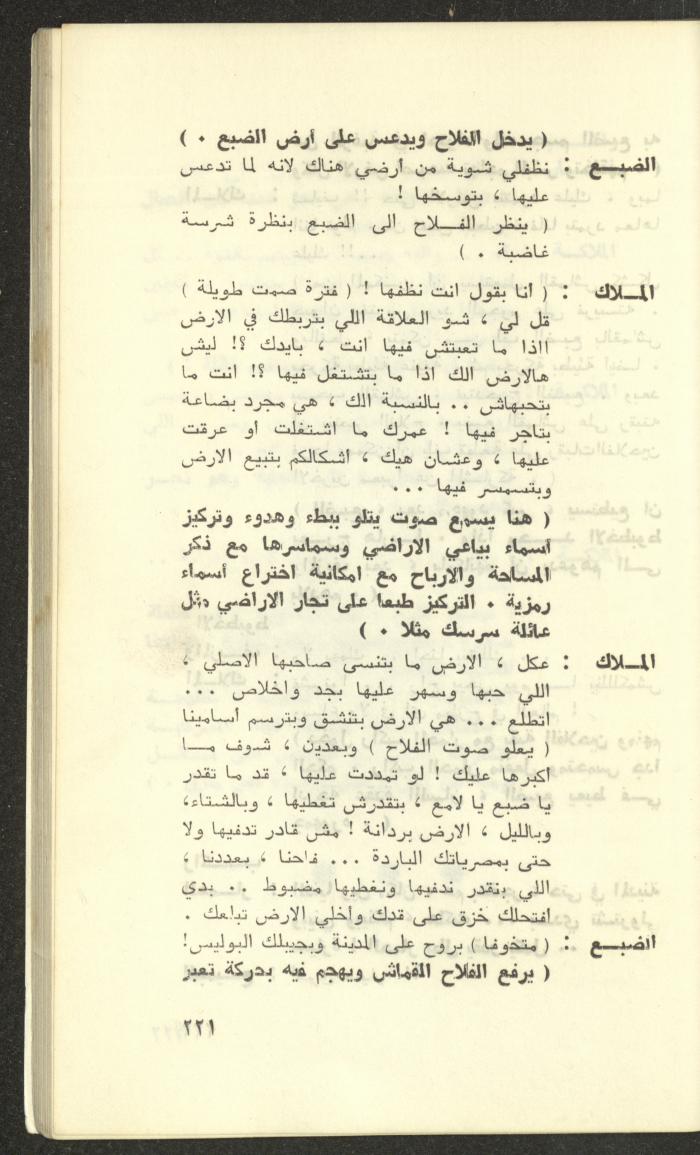 ( يدخل الفلاح ويدعس على أرض الضبع . )
الضبـــع : نظفلي شوية من أرضي هناك لانه لما تدعس
عليها ، بتوسخها !
( ينظر الفـــلاح الى الضبع بنظرة شرسة
غاضبة . )
المـــلاك : ( انا بقول انت نظفها ! ( فترة صمت طويلة )
قل لي ، شو العلاقة اللي بتربطك في الارض
ااذا ما تعبتش فيها انت ، بايدك ؟! ليش
هالارض الك اذا ما بتشتغل فيها ؟! انت ما
بتحبهاش .. بالنسبة الك ، هي مجرد بضاعة
بتاجر فيها ! عمرك ما اشتغلت او عرقت
عليها ، وعشان هيك ، أشكالكم بتبيع الارض
وبتسمسر فيها ...
( هنا يسمع صوت يتلو ببطء وهدوء وتركيز
أسماء بياعي الاراضي وسماسرها مع ذكر
المساحة والارباح مع امكانية اختراع أسماء
رمزية . التركيز طبعا على تجار الاراضي مثل
عائلة سرسك مثلا . )
المـــلاك : عكل ، الارض ما بتنسى صاحبها الاصلي ،
اللي حبها وسهر عليها بجد واخلاص ...
اتطلع ... هي الارض بتنشق وبترسم أسامينا
( يعلو صوت الفلاح ) وبعدين ، شوف مـــا
أكبرها عليك ! لو تمددت عليها ، قد ما تقدر
يا ضبع يا لامع ، بتقدرش تغطيها ، وبالشتاء،
وبالليل ، الارض بردانة ! مش قادر تدفيها ولا
حتى بمصرياتك الباردة ... فاحنا ، بعددنا ،
اللي بنقدر ندفيها ونغطيها مضبوط .. بدي
افتحلك خزق على قدك وأخلي الارض تبلعك .
الضبـــع : ( متخوفا ) بروح على المدينة وبجيبلك البوليس!
( يرفع الفلاح القماش ويهجم فيه بحركة تعبر
٢٢١